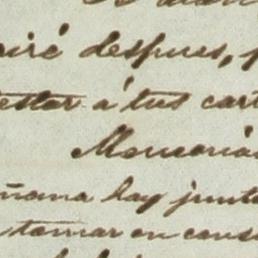 iré despues, p
testar á tus cart
Memoria
ñana hay junta
tomar en cons